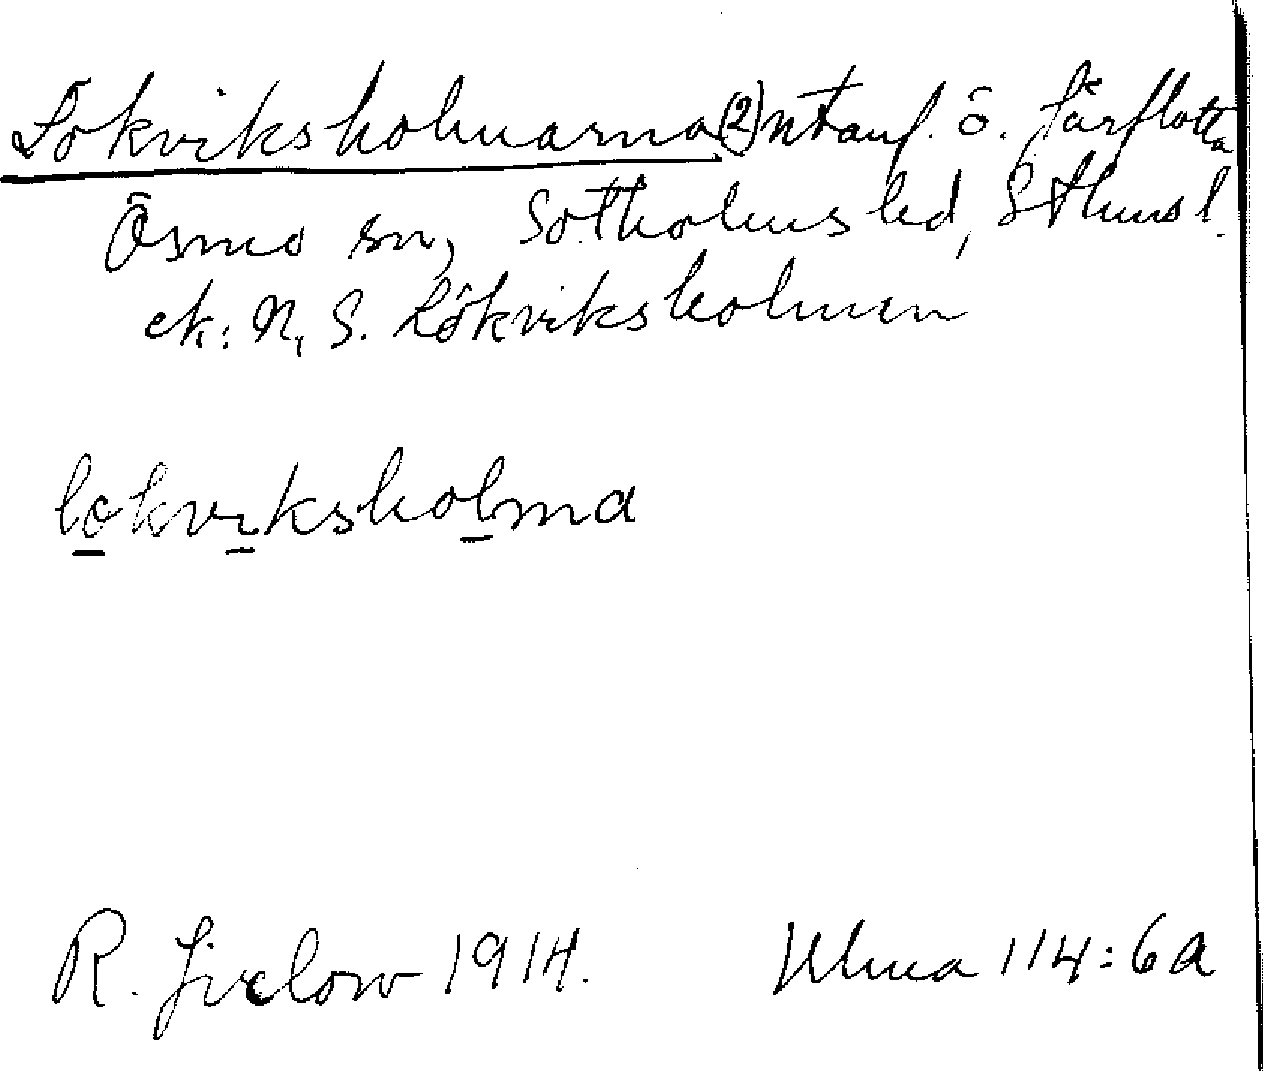 Lökviksholmarna (2) nt anf. ö. Järflotta
Ösmo sn, Sotholms hd, Sthms l.
ek: N, S. Lökviksholmen
lökviksholma
R. Jirlow 1914. Ulma 114:6a